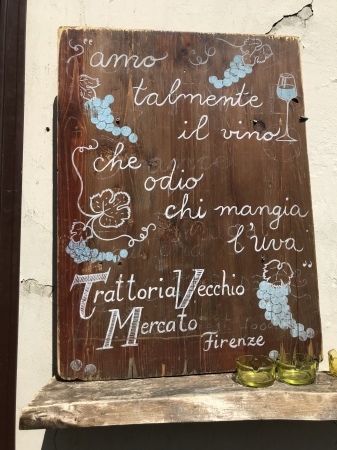 "amo
talmente
il vino
che
odio
chi mangia
l'uva"
Trattoria Vecchio
Mercato
Firenze